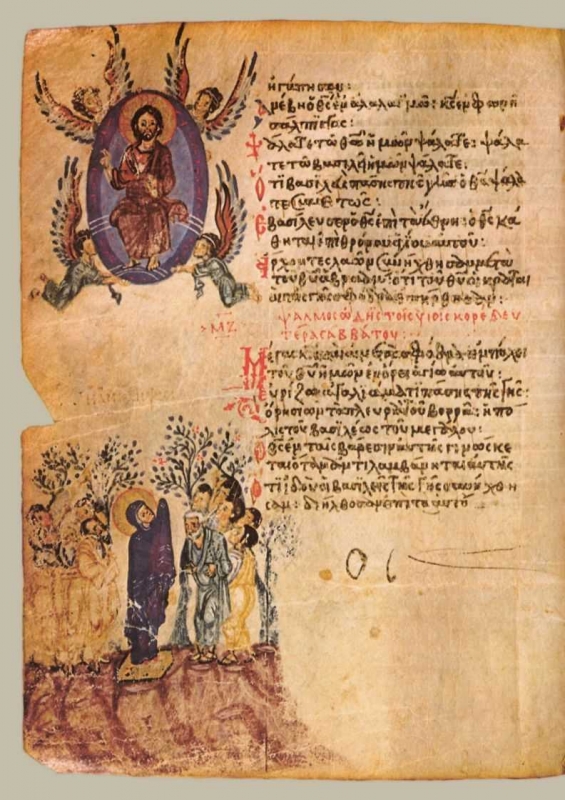 ἠγάπησεν:
Ἀνέβη ὁ θς ἐν ἀλαλαγμῷ· κς ἐν φωνῇ
σάλπιγγος:
Ψάλατε τῷ θω ἡμῶν ψάλατε· ψάλα
τε τῷ βασιλεῖ ἡμῶν ψάλατε:
Ὅτι βασιλεὺς πάσης τῆς γῆς ὁ θς ψάλα
τε συνετῶς:
Ἐβασίλευσεν ὁ θς ἐπὶ τὰ ἔθνη· ὁ θς κά
θηται ἐπὶ θρόνου ἁγίου αὐτοῦ:
Ἄρχοντες λαῶν συνήχθησαν μετὰ
τοῦ θυ ἀβραάμ· ὅτι τοῦ θυ οἱ κραταιοὶ
ἐπήρθησαν:
ΜΖ ψαλμὸς ᾠδῆς τοῖς υἱοῖς κορὲ δευ
τέρα σαββάτου:
Μέγας κς καὶ αἰνετὸς σφόδρα ἐν πόλει
τοῦ θυ ἡμῶν ἐν ὄρει ἁγίω αὐτοῦ:
Εὐρίζω ἀγαλλιάματι πάσης τῆς γῆς:
ὄρη σιὼν τὰ πλευρὰ τοῦ βορρᾶ· ἡ πό
λις τοῦ βασιλέως τοῦ μεγάλου:
Ὁ θς ἐν ταῖς βάρεσιν αὐτῆς γινώσκε
ται ὅταν ἀντιλαμβάνηται αὐτῆς
Ὅτι ἰδοὺ οἱ βασιλεῖς τῆς γῆς συνήχθη
σαν· διήλθοσαν ἐπὶ τὸ αὐτό